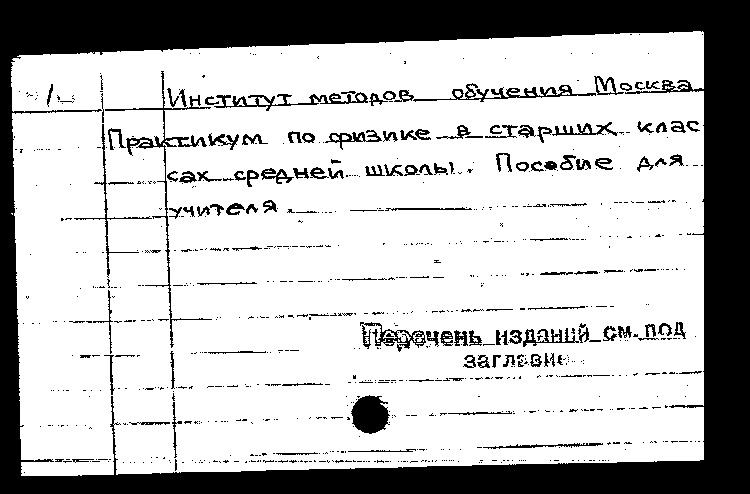 Институт методов обучения Москва
Практикум по физике в старших клас
сах средней школы. Пособие для
учителя.
Перечень изданий см. под
заглавие